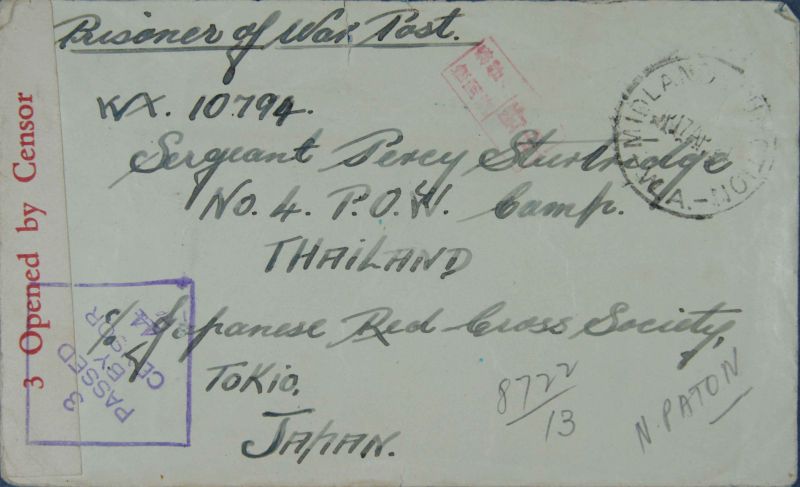 Prisoner of War Post.
WX. 10794.
Sergeant Percy Sturtridge
No. 4. P.O.W. Camp.
THAILAND
c/o Japanese Red Cross Society,
Tokio,
JAPAN.
8722/13
N. PATON
3 Opened by Censor
3
PASSED
BY
CENSOR
MIDLAND JUNCTION
W.A.